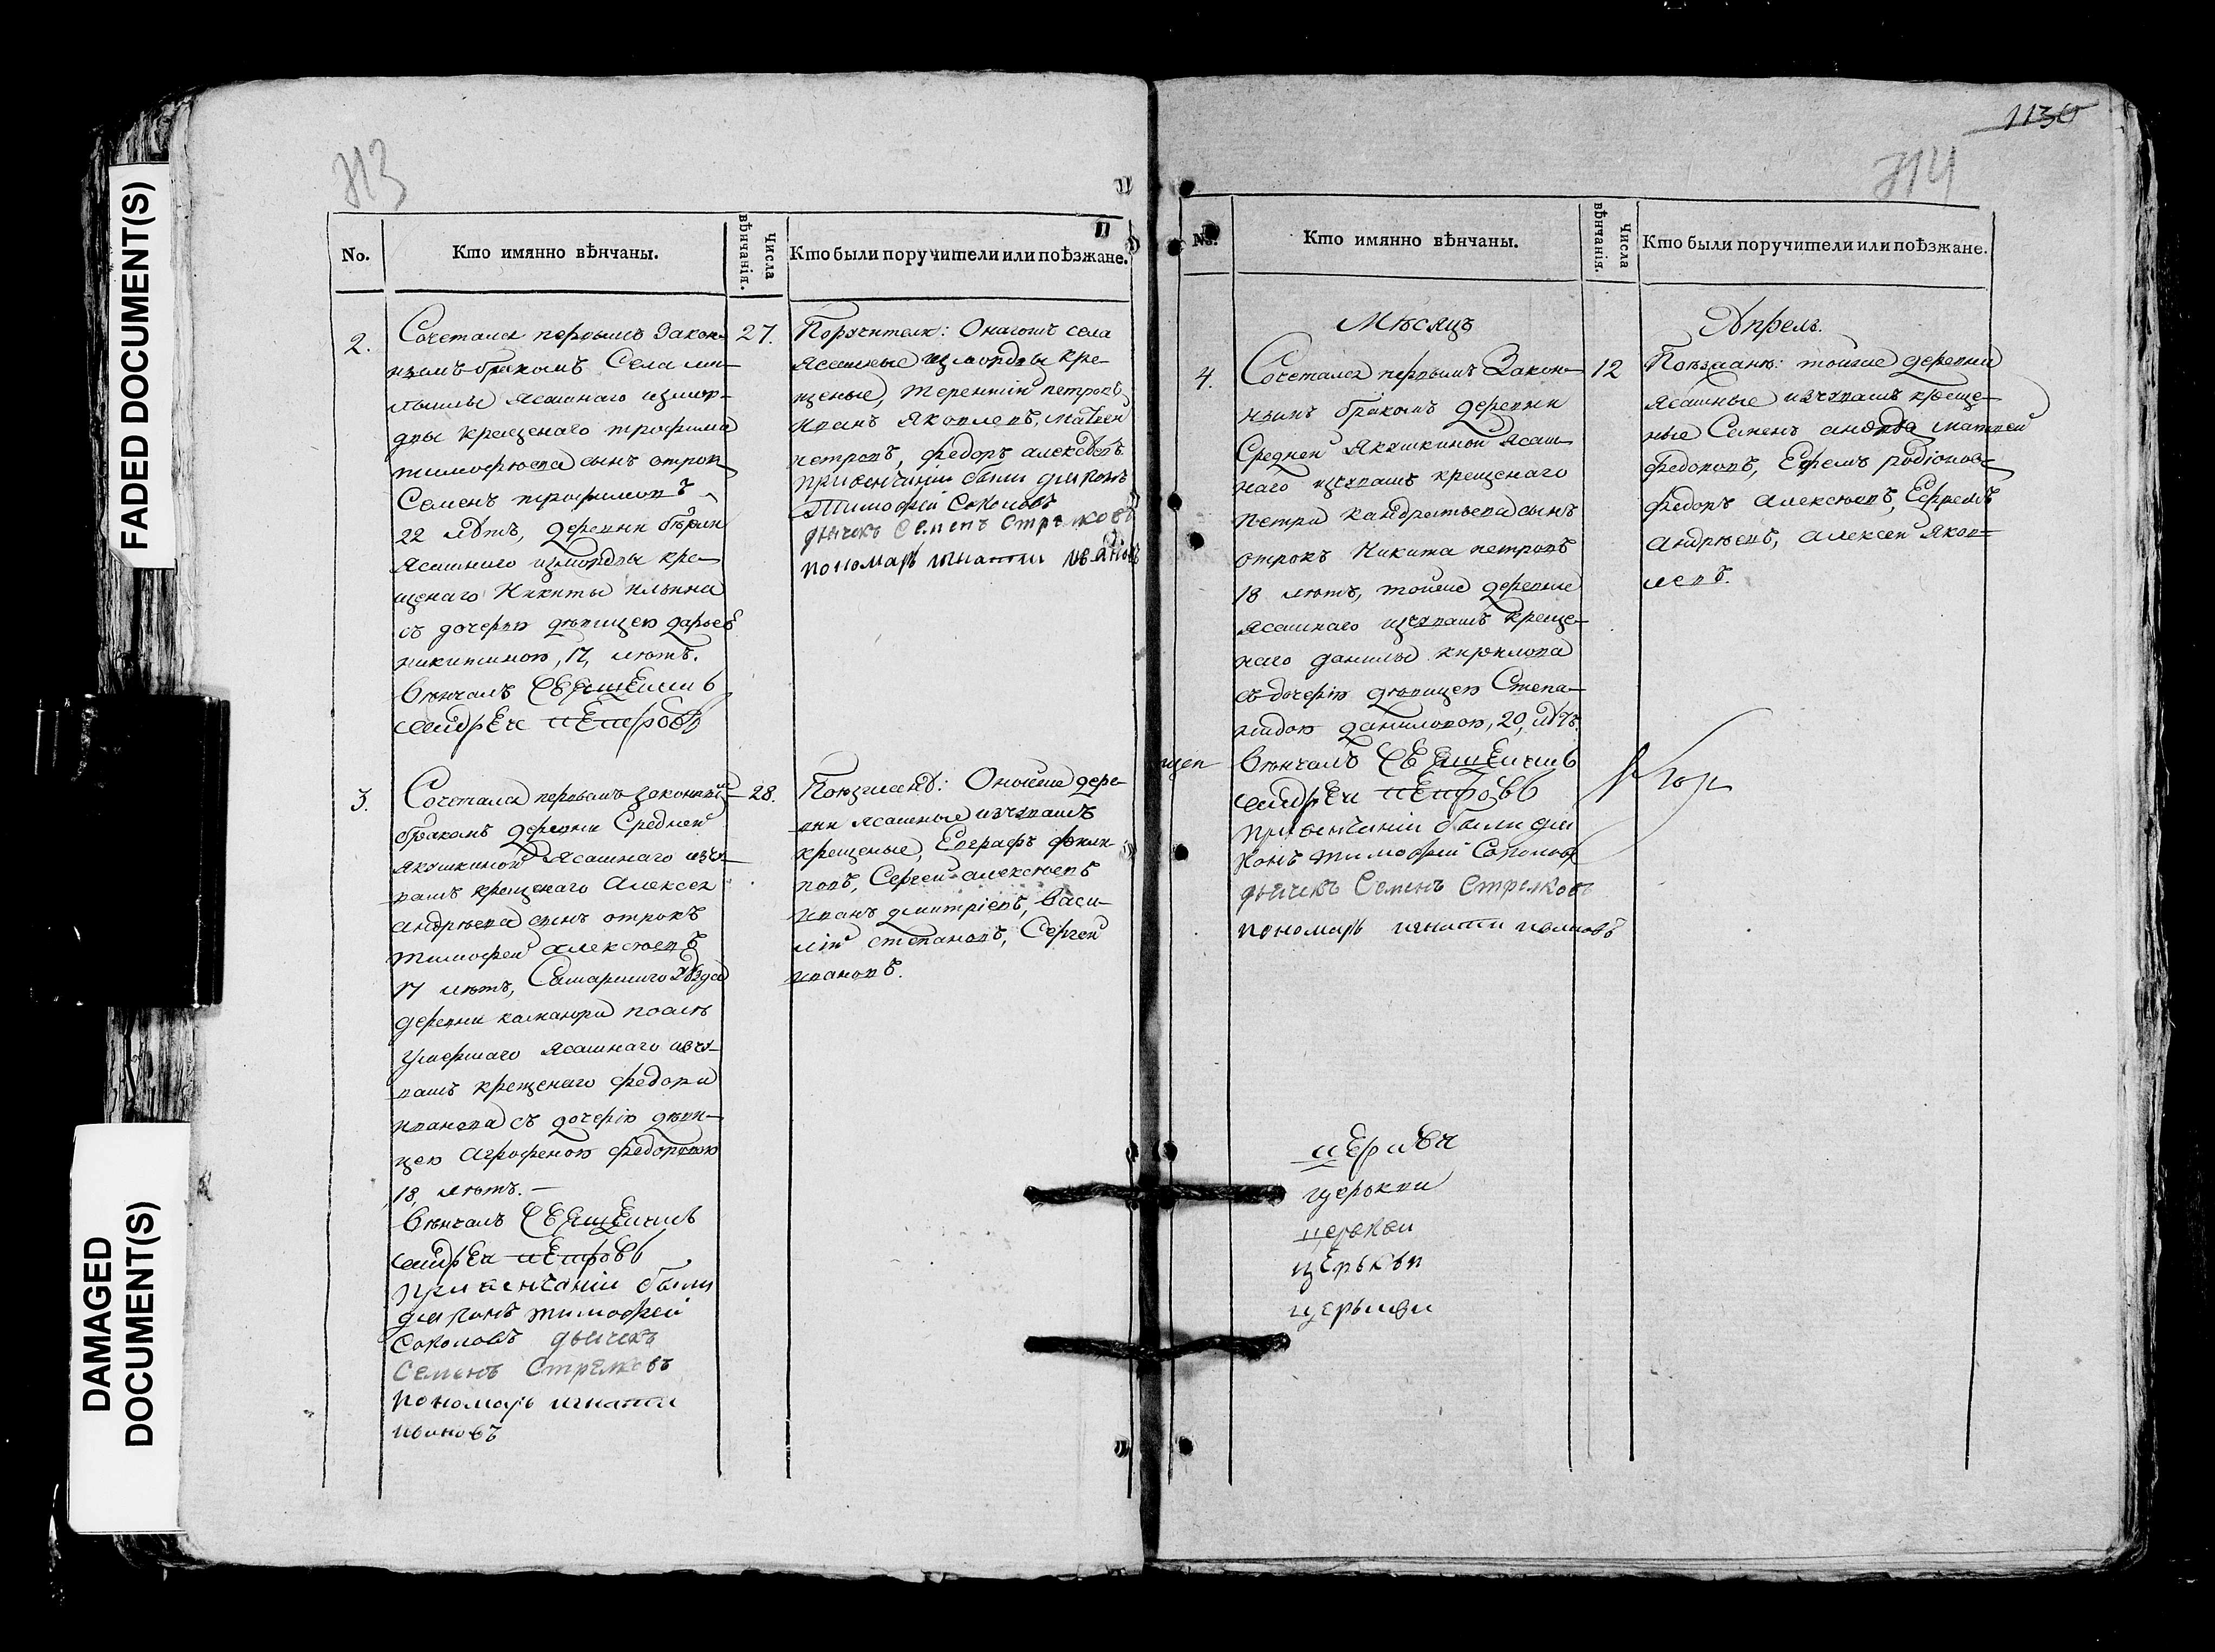 FADED DOCUMENT(S)
DAMAGED
DOCUMENT(S)
713
No.
Кто имянно вѣнчаны.
Числа
вѣнчанія.
Кто были поручители или поѣзжане.
2.
Сочетался первымъ закон-
нымъ бракомъ Села
ясашнаго измор-
двы крещенаго трофима
тимофѣева сынъ отрок
Семенъ трофимовъ
22 лѣтъ, деревни
ясашнаго измордвы кре-
щенаго Никиты ильина
съ дочерью дѣвицею дарьею
никитиною, 17, лѣтъ.
Вѣнчалъ священникъ
андрей петровъ
27.
Поручители: Онагожъ села
ясашные измордвы кре-
щеные, терентій петровъ,
иванъ яковлевъ, матвеи
петровъ, федоръ алексѣевъ
при венчании были диаконъ
Тимофей Соколовъ
дьячекъ Семенъ Стрелковъ
пономарь игнати ивановъ
3.
Сочетался первымъ законны
бракомъ деревни Средней
якушкиной ясашнаго изчу-
вашъ крещенаго Алексея
андрѣева сынъ отрокъ
тимофеи алексѣевъ
17 лѣтъ, Самарскаго уѣзда
деревни послѣ
умершаго ясашнаго изчу-
вашъ крещенаго федора
иванова съ дочерію дѣви-
цею Агрофеною федоровою
18, лѣтъ. —
Вѣнчалъ священникъ
андреи петровъ
при венчании были
диаконъ тимофей
Соколовъ дьячекъ
Семенъ Стрелковъ
пономарь игнати
ивановъ
28.
Поѣзжанѣ: Оноиже дере-
вни ясашные изчувашъ
крещеные, Евграфъ
Сергеи алексѣевъ
иванъ дмитріевъ, Васи-
лій степановъ, Сергеи
ивановъ.
1130
714
No.
Кто имянно вѣнчаны.
Числа
вѣнчанія.
Кто были поручители или поѣзжане.
Мѣсяцъ
Апрель.
4.
Сочетался первымъ Закон-
нымъ бракомъ деревни
Средней якушкиной ясаш-
наго изчувашъ крещенаго
петра кандратьева сынъ
отрокъ Никита петровъ
18 лѣтъ, тоиже деревни
ясашнаго изчувашъ креще-
наго данилы кирилова
съ дочерію дѣвицею Степа-
нидою даниловою, 20, лѣтъ.
Вѣнчалъ священникъ
андреи петровъ
при венчании были диа
конъ тимофей Соколовъ
дьячекъ Семенъ Стрелковъ
пономарь игнати ивановъ
12
Поѣзжанѣ: тоиже деревни
ясашные изчувашъ креще-
ные Семенъ матвеи
федоровъ, Ефремъ родіоновъ
федоръ алексѣевъ, Ефремъ
андрѣевъ, алексеи яков-
левъ.
церкви
церькви
церькви